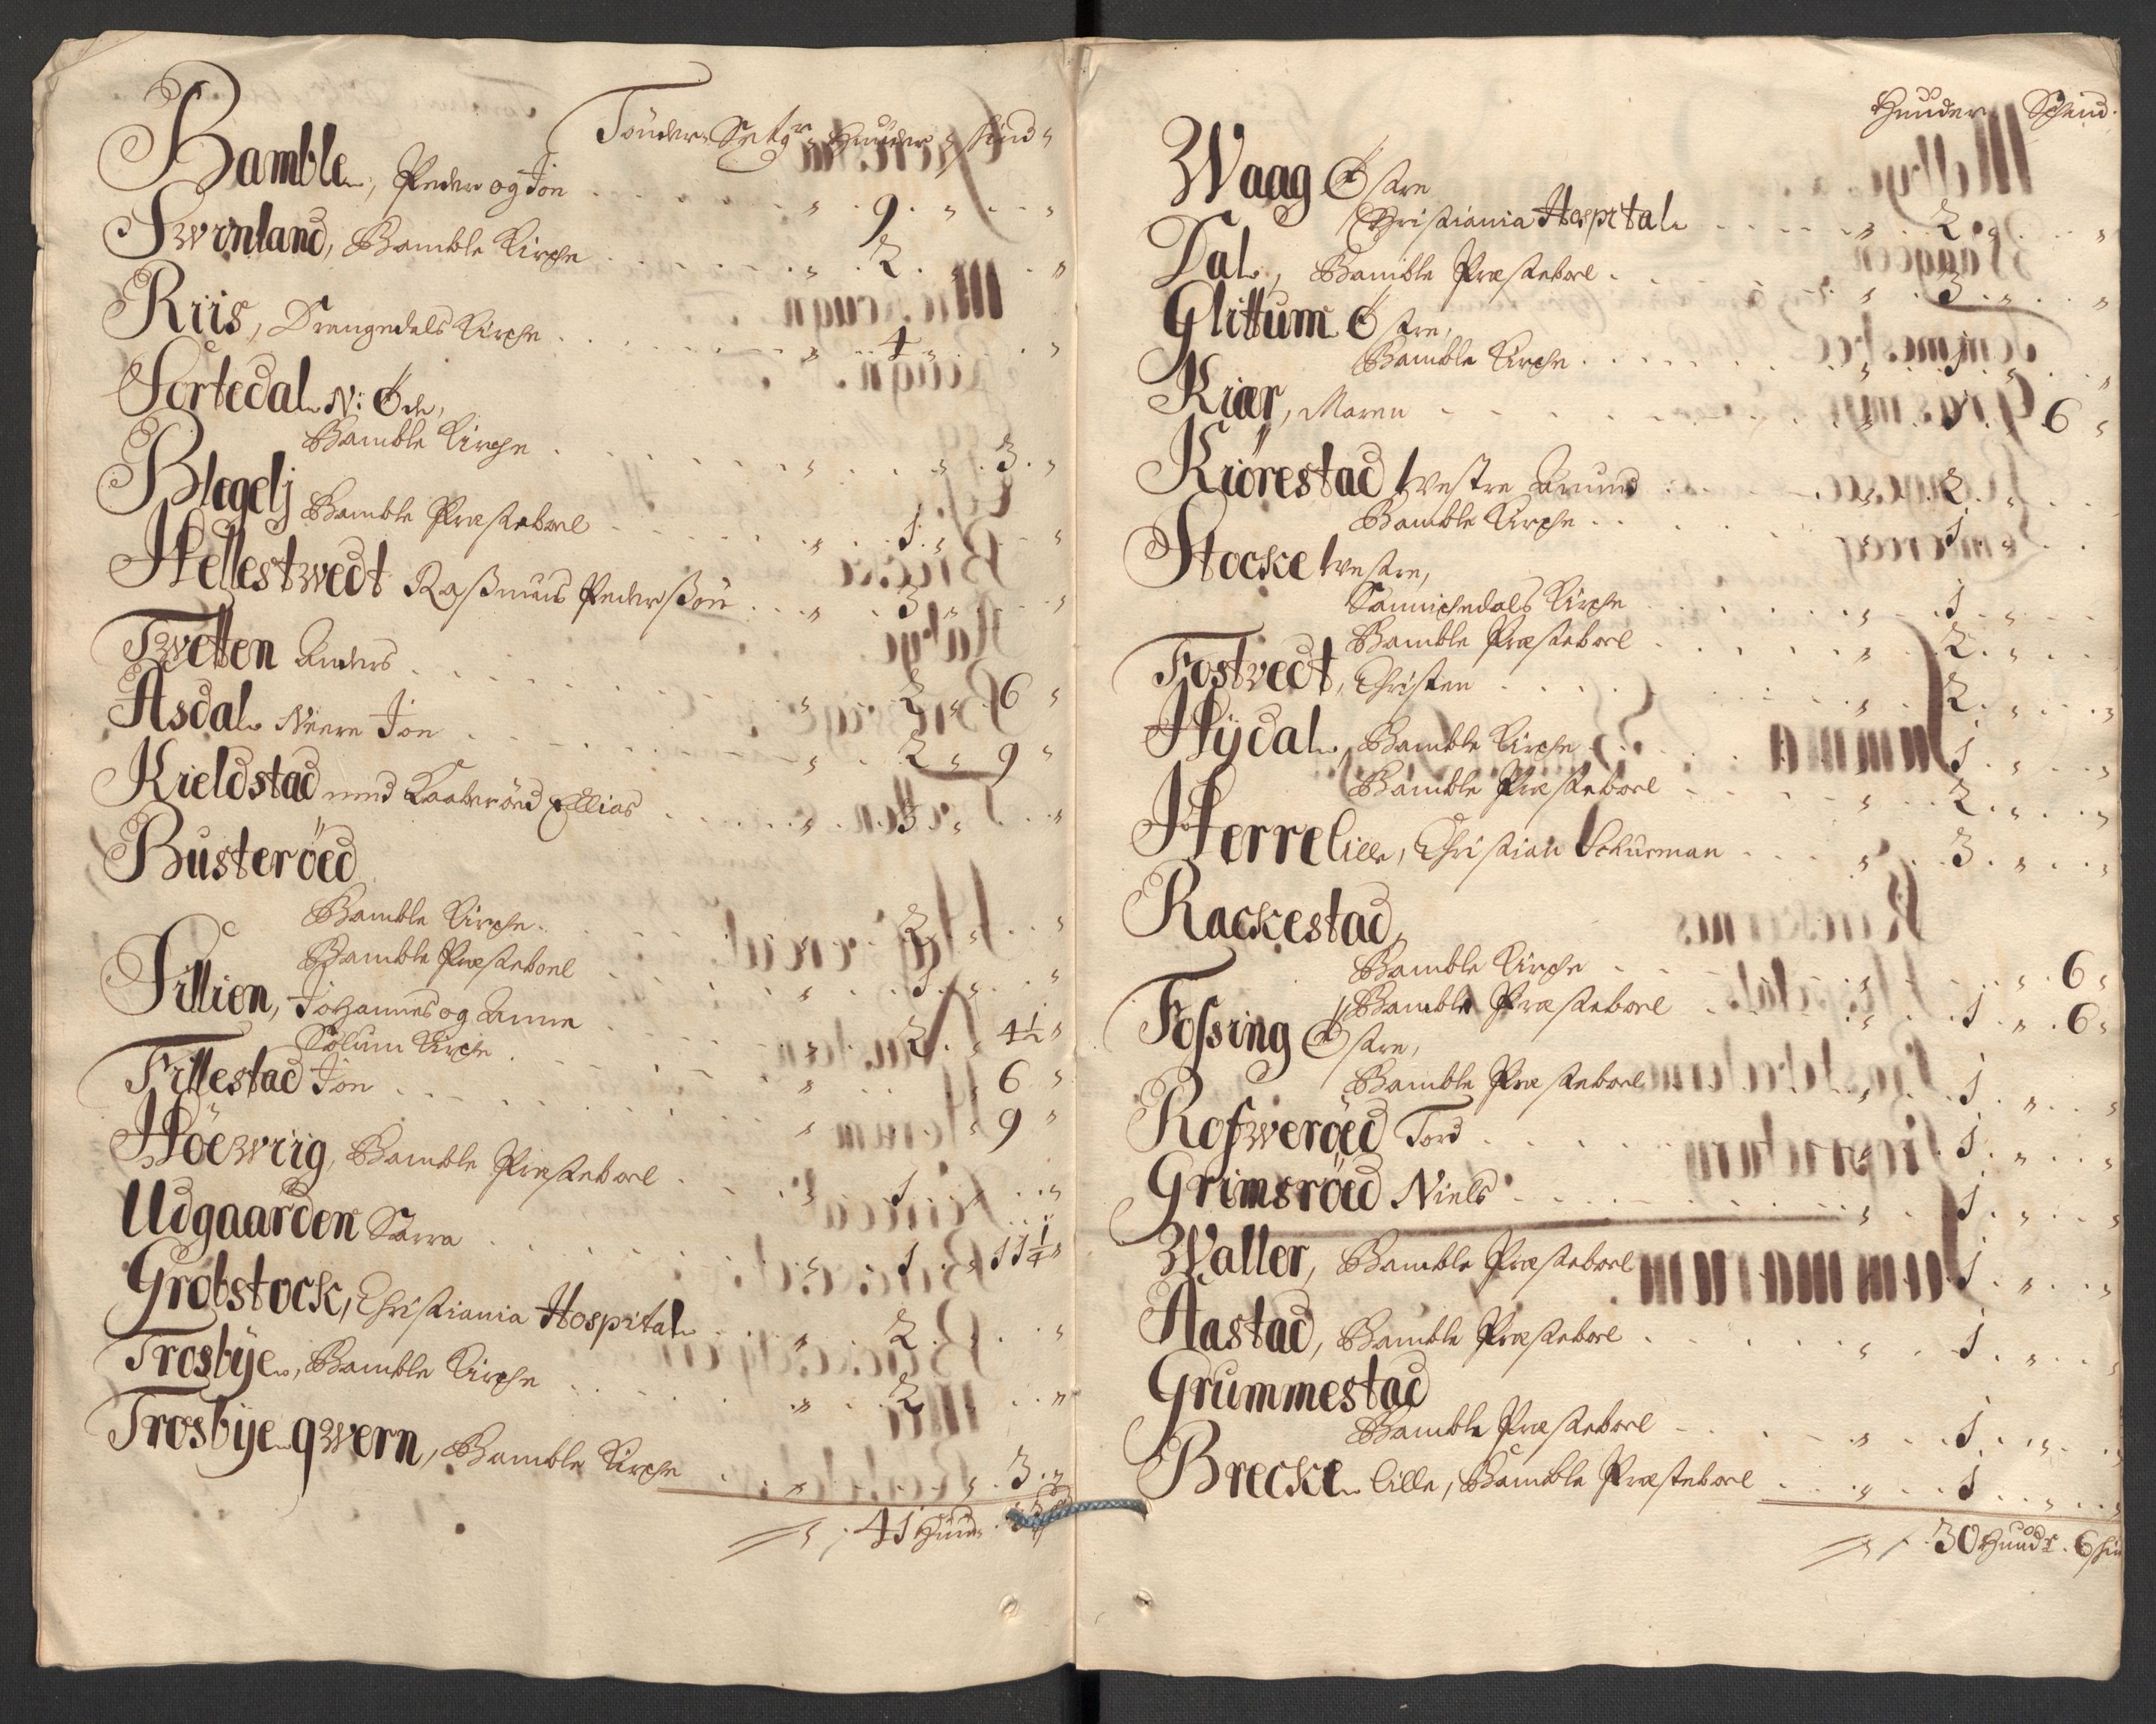 Tönder Setg. Huuder skind
Bamble, Peder og Jon . . . 9 . .
Swinland, Bamble Kirche . . . 2 . .
Riis, Drangedals Kirche . . . 4 . .
Sortedal N: Öde,
Bamble Kirche . . . 3 .
Blegelj Bamble Præsteboel . . . 1 . .
Hellestwedt Rasmus Pederßön . . . 3 . .
Twetten Anders . . . 2 . 6
Asdal Neere Jon . . . 2 . 9
Kieldstad med Kaaberöed Ellias . . . 3 . .
Busteröed
Bamble Kirche . . . 2 . .
Bamble Præsteboel . . . 1 . .
Tillien, Johannes og Anne . . . 2 . 4½
Solum Kirche . . . 6
Fillestad Jon . . . 9
Höewriig, Bamble Præsteboel . . . 1 . .
Udgaarden Sara . . . 1 . 11¼
Grobstock, Christiania Hospital . . . 2 . .
Trosbye, Bamble Kirche . . . 2 . .
Trosbye qwern, Bamble Kirche . . . 3 .
41 Huude
Huuder Schind.
Waag Östre
Christiania Hospital . . . 2 . .
Dal, Bamble Præsteboel . . . 3 . .
Glittum Östre,
Bamble Kirche . . . 1 . .
Kiær, Maren . . . 1 . 6
Kiörestad westre Amund . . . 2 . .
Bamble Kirche . . . 1 . .
Stocke westre,
Sannichedals Kirche . . . 1 . .
Bamble Præsteboel . . . 2 . .
Fostvedt, Christen . . . 2 . .
Hydal, Bamble Kirche . . . 1 . .
Bamble Præsteboel . . . 2 . .
Herre lille, Christian Schurman . . . 3 . .
Rackestad,
Bamble Kirche . . . 6
Bamble Præsteboel . . . 1 . 6
Fossing Östre,
Bamble Præsteboel . . . 1 . .
Rofweröed Tord . . . 1 . .
Grimsröed Niels . . . 1 . .
Waller, Bamble Præsteboel . . . 1 . .
Aastad, Bamble Præsteboel . . . 1 . .
Grummestad
Bamble Præsteboel . . . 1 . .
Brecke lille, Bamble Præsteboel . . . 1 . .
30 Huudr. 6 skin